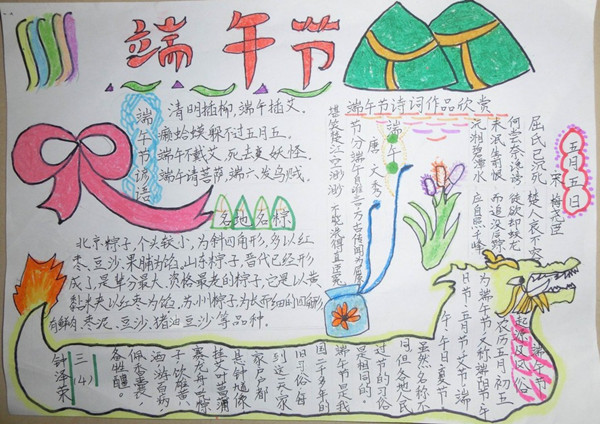 端午节
端午节谚语
清明插柳,端午插艾。
癞蛤蟆躲不过五月五。
端午不戴艾,死去变妖怪。
端午请菩萨,端六发乌贼。
端午节诗词作品欣赏
端午
唐 文秀
节分端午自谁言,万古传闻为屈原
堪笑楚江空渺渺,不能洗得直臣冤
五月五日
宋 梅尧臣
屈氏已沉死,楚人哀不容
何尝奈谗谤,徒欲却蛟龙
未泯生前恨,而追没后踪
沅湘碧潭水,应自照千峰
各地名粽
北京粽子,个头较小,为斜四角形,多以红
枣、豆沙、果脯为馅。山东粽子,晋代已经形
成了,是辈分最大、资格最老的粽子,它是以黄
黏米夹以红枣为馅。苏小粽子为长而细的四角形
有鲜肉、枣泥、豆沙、猪油豆沙等品种。
端午节
起源及风俗
农历五月初五
为端午节,又称端阳节、午
日节、五月节、艾节、端
午、午日、夏节
虽然名称不
同,但各地人民
过节的习俗
是相同的。
端午节是我
国二千多年的
旧习俗,每
到这一天,家
家户户都
悬钟馗像
挂艾叶菖蒲
赛龙舟、吃粽
子、饮雄黄
酒、游百病,
佩香囊,
备牲醴。
三(4)
钟泽荣